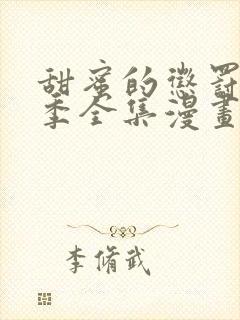 甜蜜的懲罰
季全集漫畫
李脩武